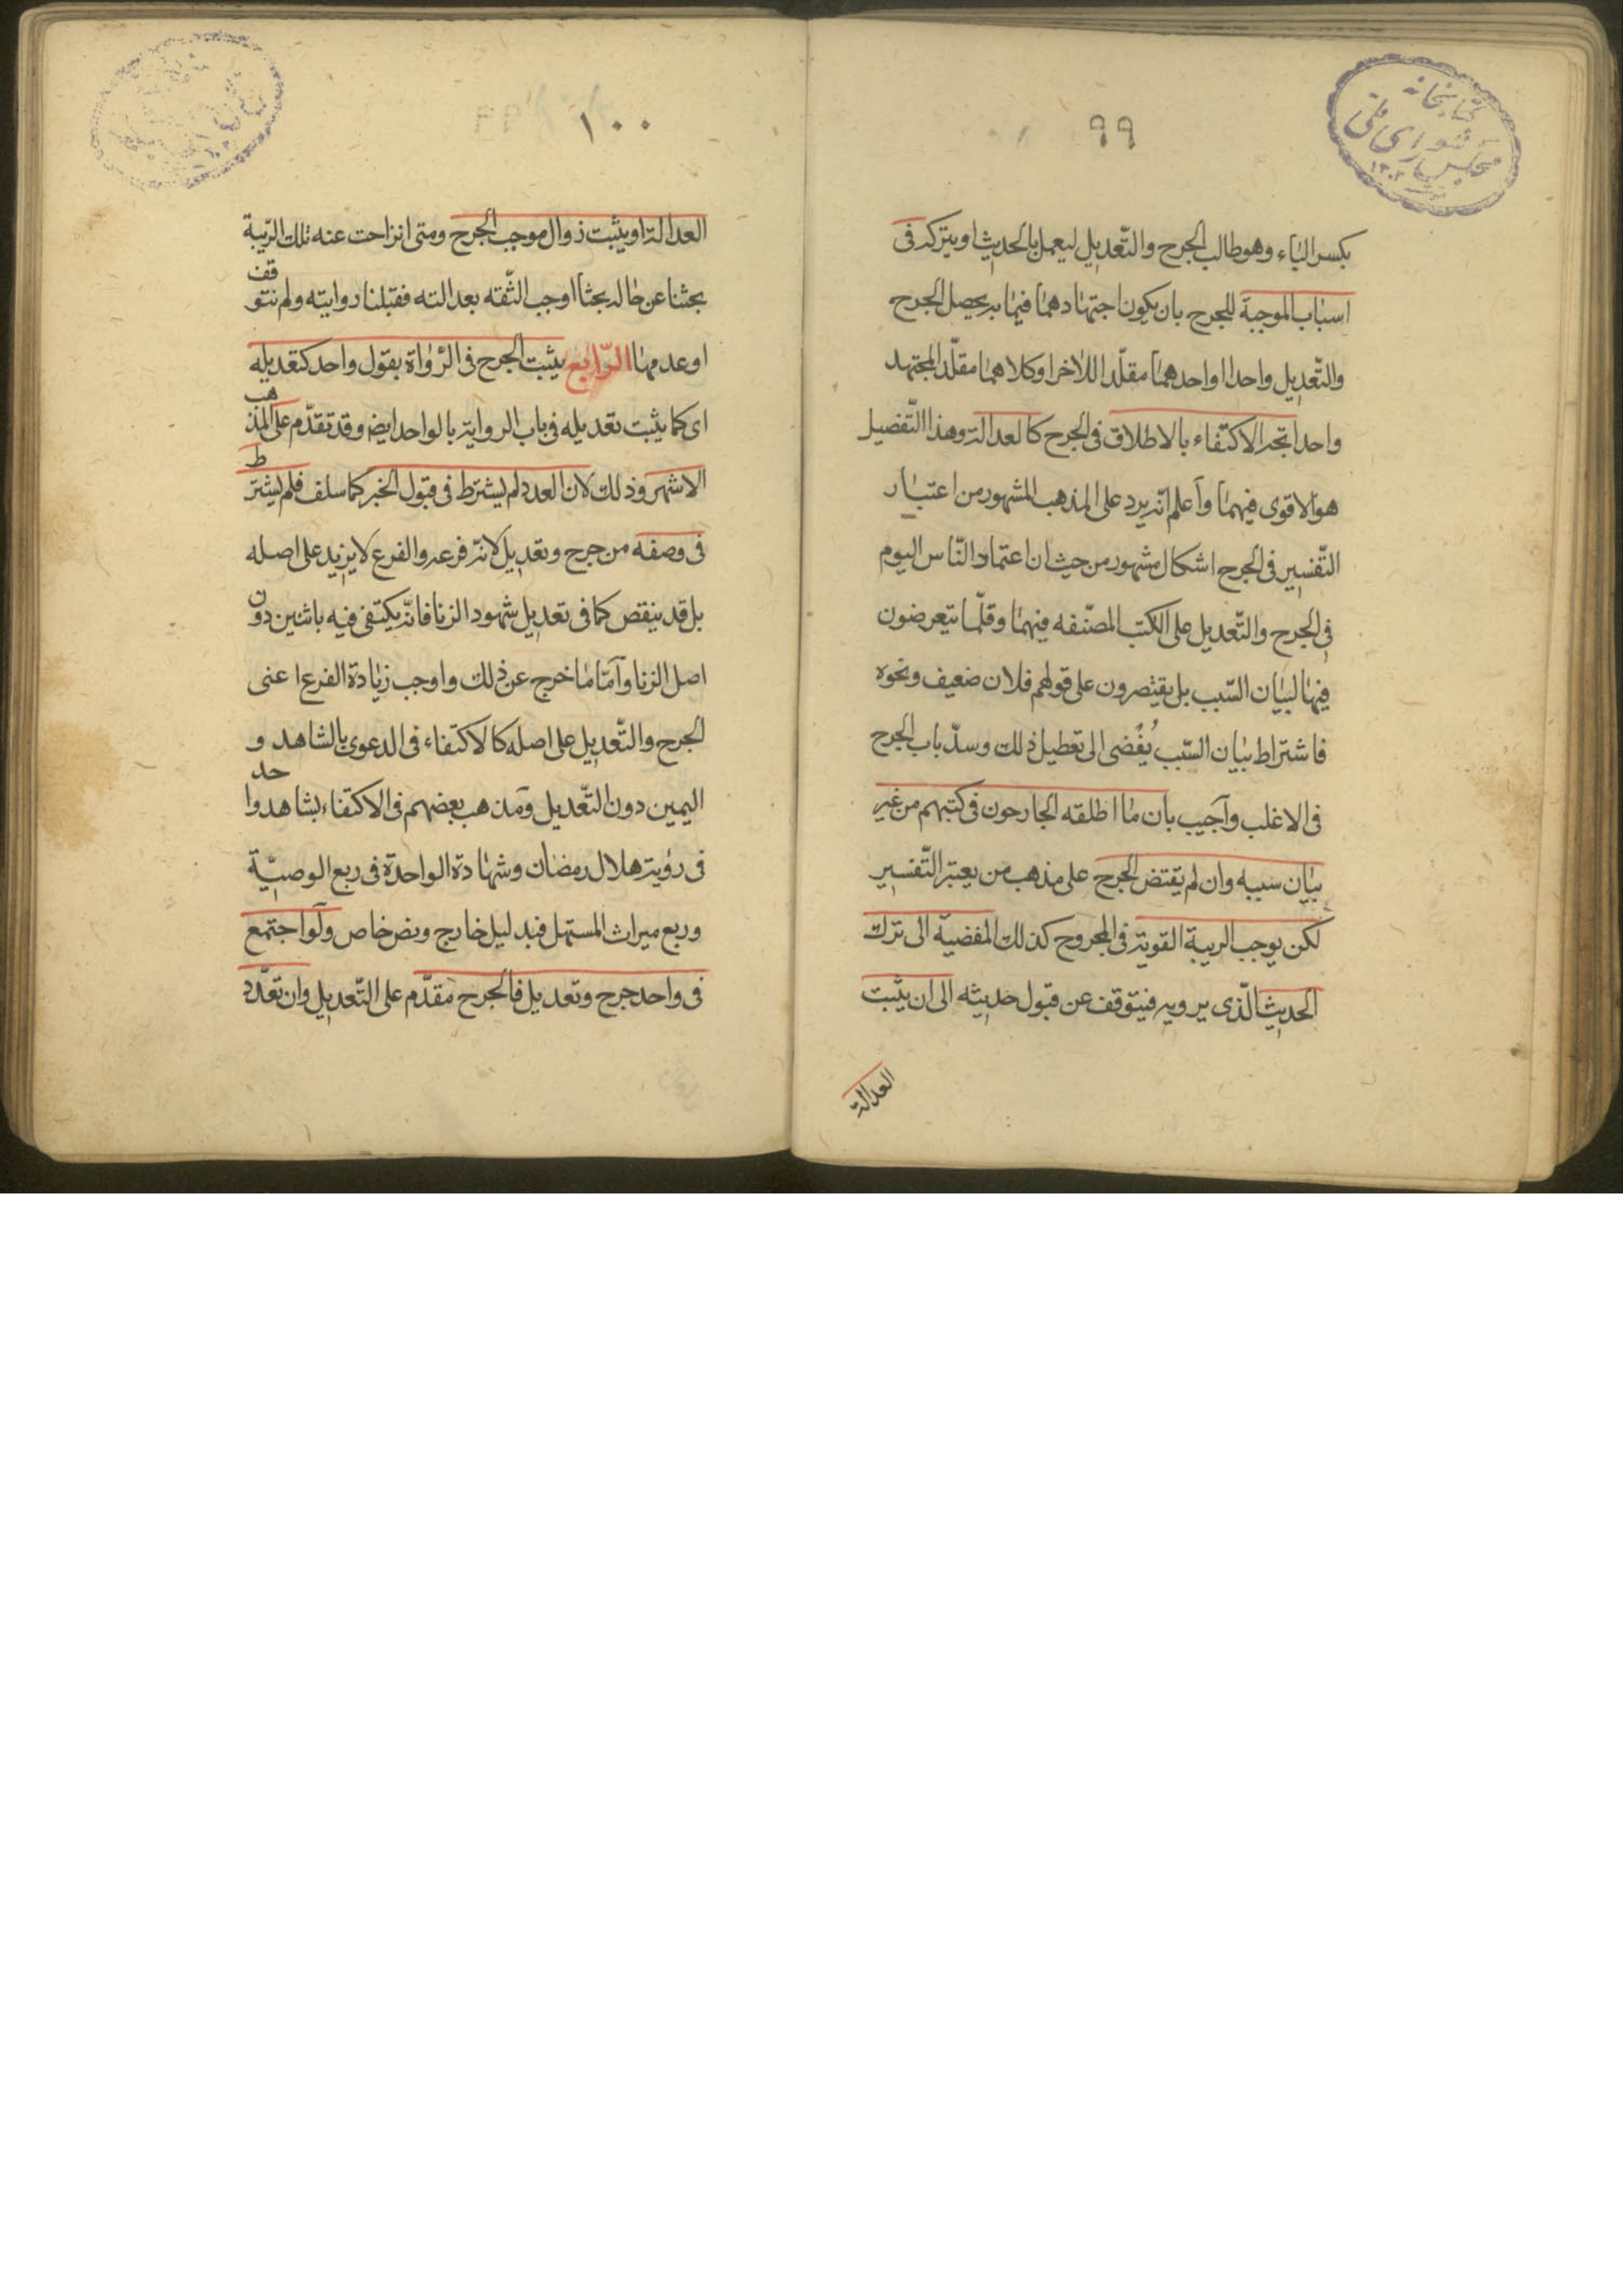 كتابخانه
مجلس شورای ملی
٩٩
بكسر الياء وهو طالب الجرح والتّعديل ليعمل بالحديث او يتركه فى
اسباب الموجبة للجرح بان يكون اجتهادهما فيما به يحصل الجرح
والتّعديل واحدا او احدهما مقلّدا للاخر او كلاهما مقلّد المجتهد
واحد اتجه الاكتفاء بالاطلاق فى الجرح كالعدالة وهذا التّفصيل
هو الاقوى فيهما وآعلم انه يرد على المذهب المشهور من اعتبار
التّفسير فى الجرح اشكال مشهور من حيث ان اعتماد النّاس اليوم
فى الجرح والتّعديل على الكتب المصنّفه فيهما وقلّما يتعرضون
فيها لبيان السّبب بل يقتصرون على قولهم فلان ضعيف ونحوه
فاشتراط بيان السّبب يُفْضى الى تعطيل ذلك وسدّ باب الجرح
فى الاغلب وآجيب بان ما اطلقه الجارحون فى كتبهم من غير
بيان سببه وان لم يقتض الجرح على مذهب من يعتبر التّفسير
لكن يوجب الريبة القوية فى المجروح كذلك المفضيّة الى ترك
الحديث الّذى يرويه فيتوقف عن قبول حديثه الى ان يثبت
العدالة
١٠٠
العدالة او يثبت زوال موجب الجرح ومتى انزاحت عنه تلك الرّيبة
بحثنا عن حاله بحثا اوجب الثّقه بعدالته فقبلنا روايته ولم نتوقف
او عدمها الرّابع يثبت الجرح فى الرّواة بقول واحد كتعديله
اى كما يثبت تعديله فى باب الرواية بالواحد ايضا وقد تقدّم على المذهب
الاشهر وذلك لان العدد لم يشترط فى قبول الخبر كما سلف فلم يشترط
فى وصفه من جرح وتعديل لانه فرعه والفرع لا يزيد على اصله
بل قد ينقص كما فى تعديل شهود الزنا فانّه يكتفى فيه باثنين دون
اصل الزنا وآمّا ما خرج عن ذلك واوجب زيادة الفرع اعنى
الجرح والتّعديل على اصله كالاكتفاء فى الدعوى بالشاهد و
اليمين دون التّعديل ومذهب بعضهم فى الاكتفاء بشاهد واحد
فى رؤية هلال رمضان وشهادة الواحدة فى ربع الوصيّة
وربع ميراث المستهل فبدليل خارج ونص خاص ولو اجتمع
فى واحد جرح وتعديل فالجرح مقدّم على التّعديل وان تعدّد